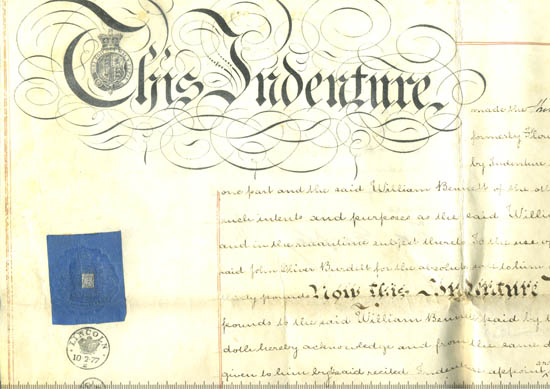 This Indenture
made the
formerly
by Indenture
one part and the said William Bennett of the oth
such intents and purposes as the said Willi
and in the meantime subject thereto To the use of
said John Oliver Burditt for the absolute to him
pounds Now this Indenture
pounds to the said William Bennett paid by t
doth hereby acknowledge and from the same d
given to him by said recited Indenture appoint
LINCOLN
10 2 77